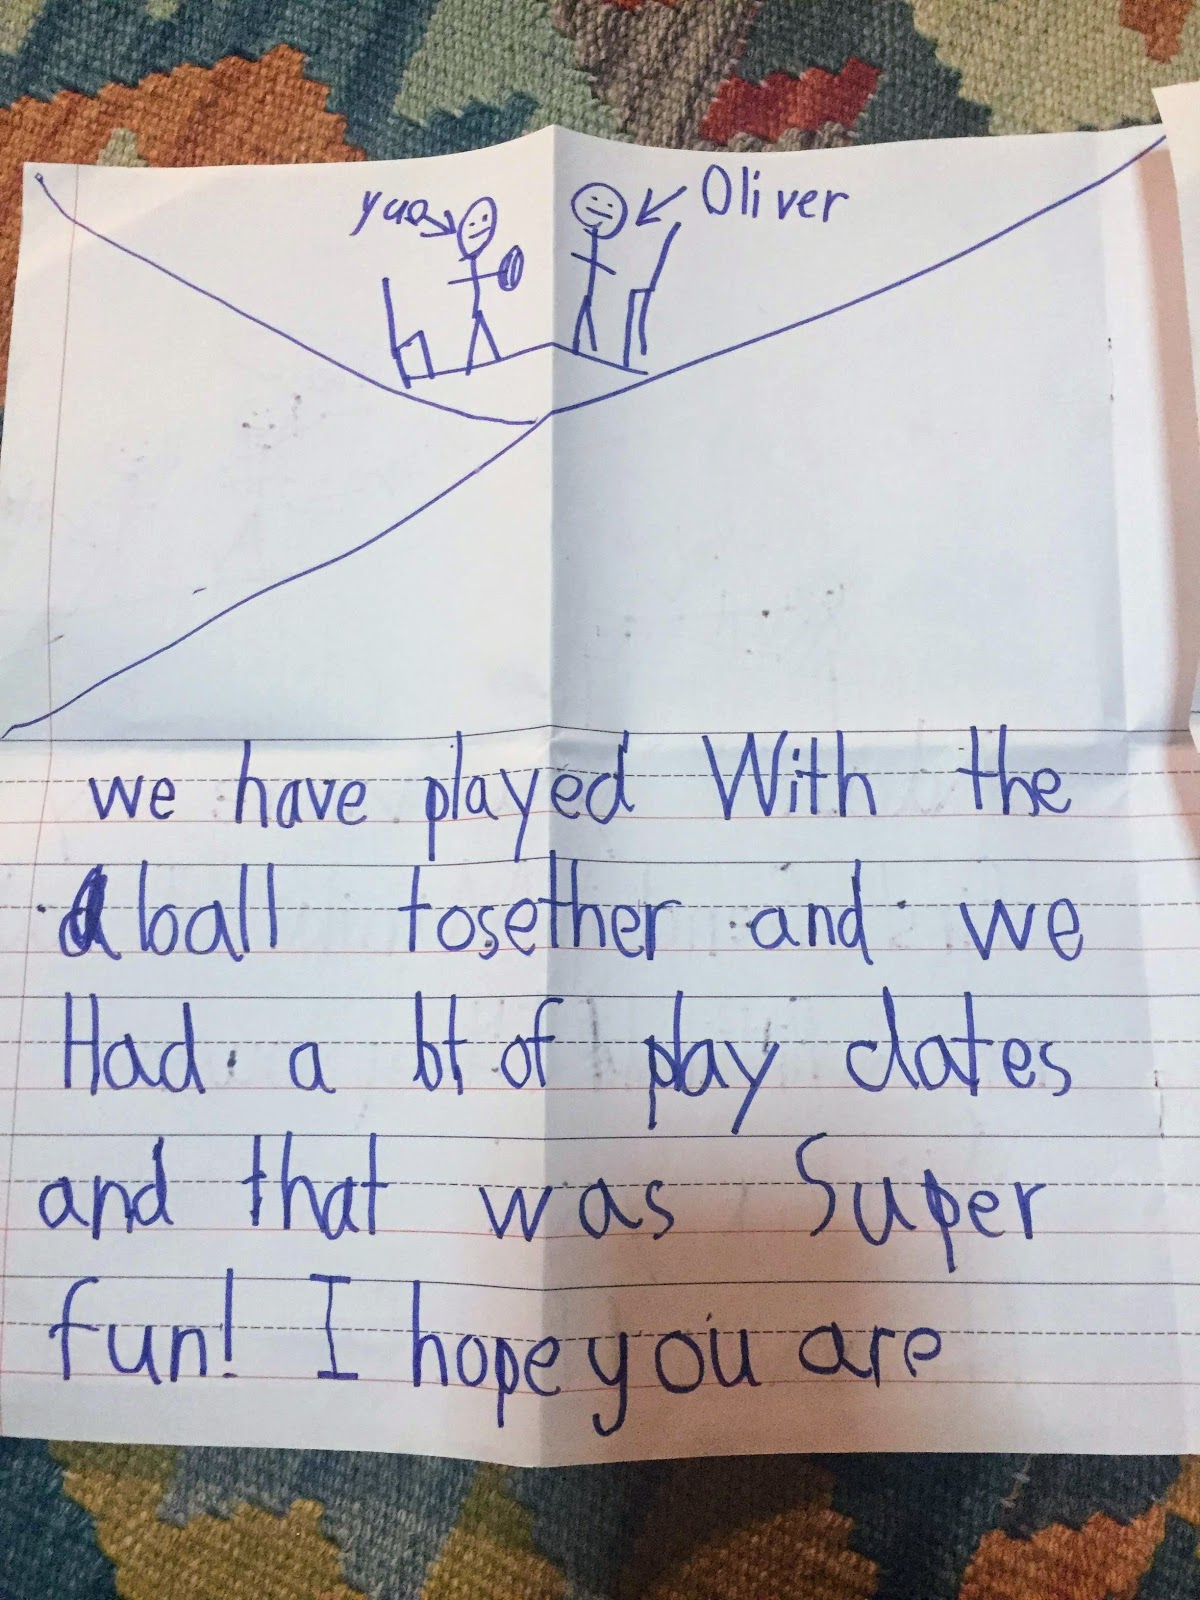 yuo
Oliver
we have played With the
ball tosether and we
Had a lot of play dates
and that was Super
fun! I hope you are